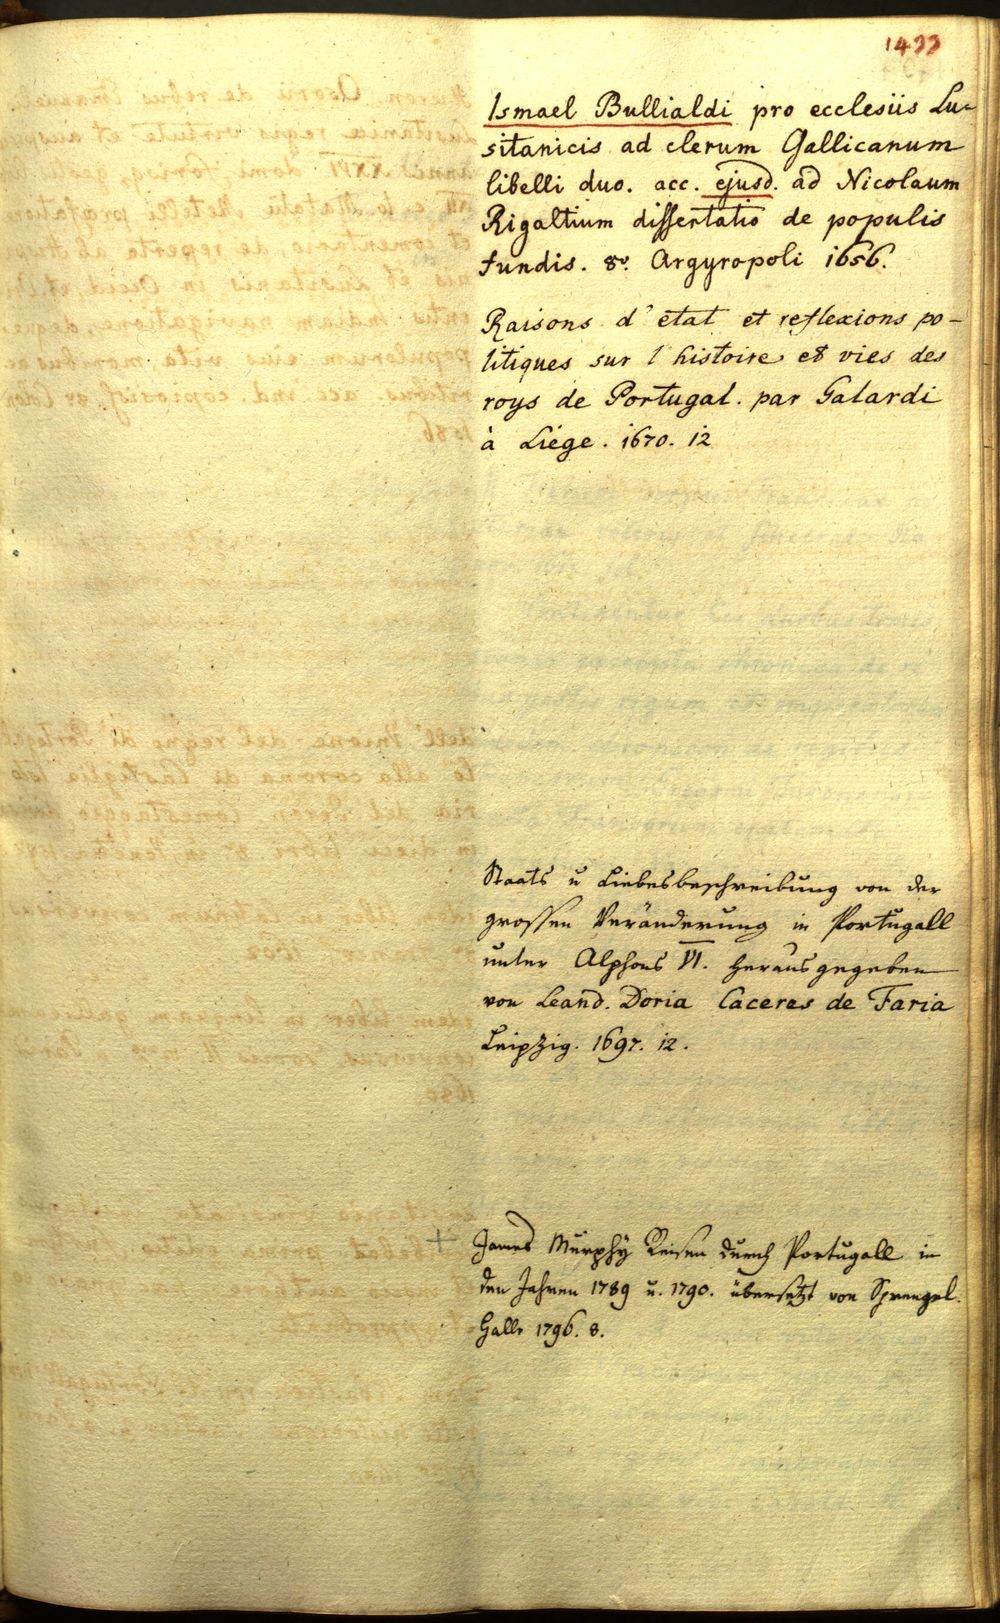 1433
Ismael Bullialdi pro ecclesiis Lu-
sitanicis ad clerum Gallicanum
libelli duo. acc. ejusd. ad Nicolaum
Rigaltium dissertatio de populis
fundis. 8º. Argyropoli 1656.
Raisons d'etat et reflexions po-
litiques sur l'histoire et vies des
roys de Portugal. par Galardi
à Liége. 1670. 12
Staats u Liebesbeschreibung von der
grossen Veränderung in Portugall
unter Alphons VI. herausgegeben
von Leand. Doria Caceres de Faria
Leipzig. 1697. 12.
+ James Murphÿ Reisen durch Portugall in
den Jahren 1789 u. 1790. übersetzt von Sprengel.
Halle 1796. 8.